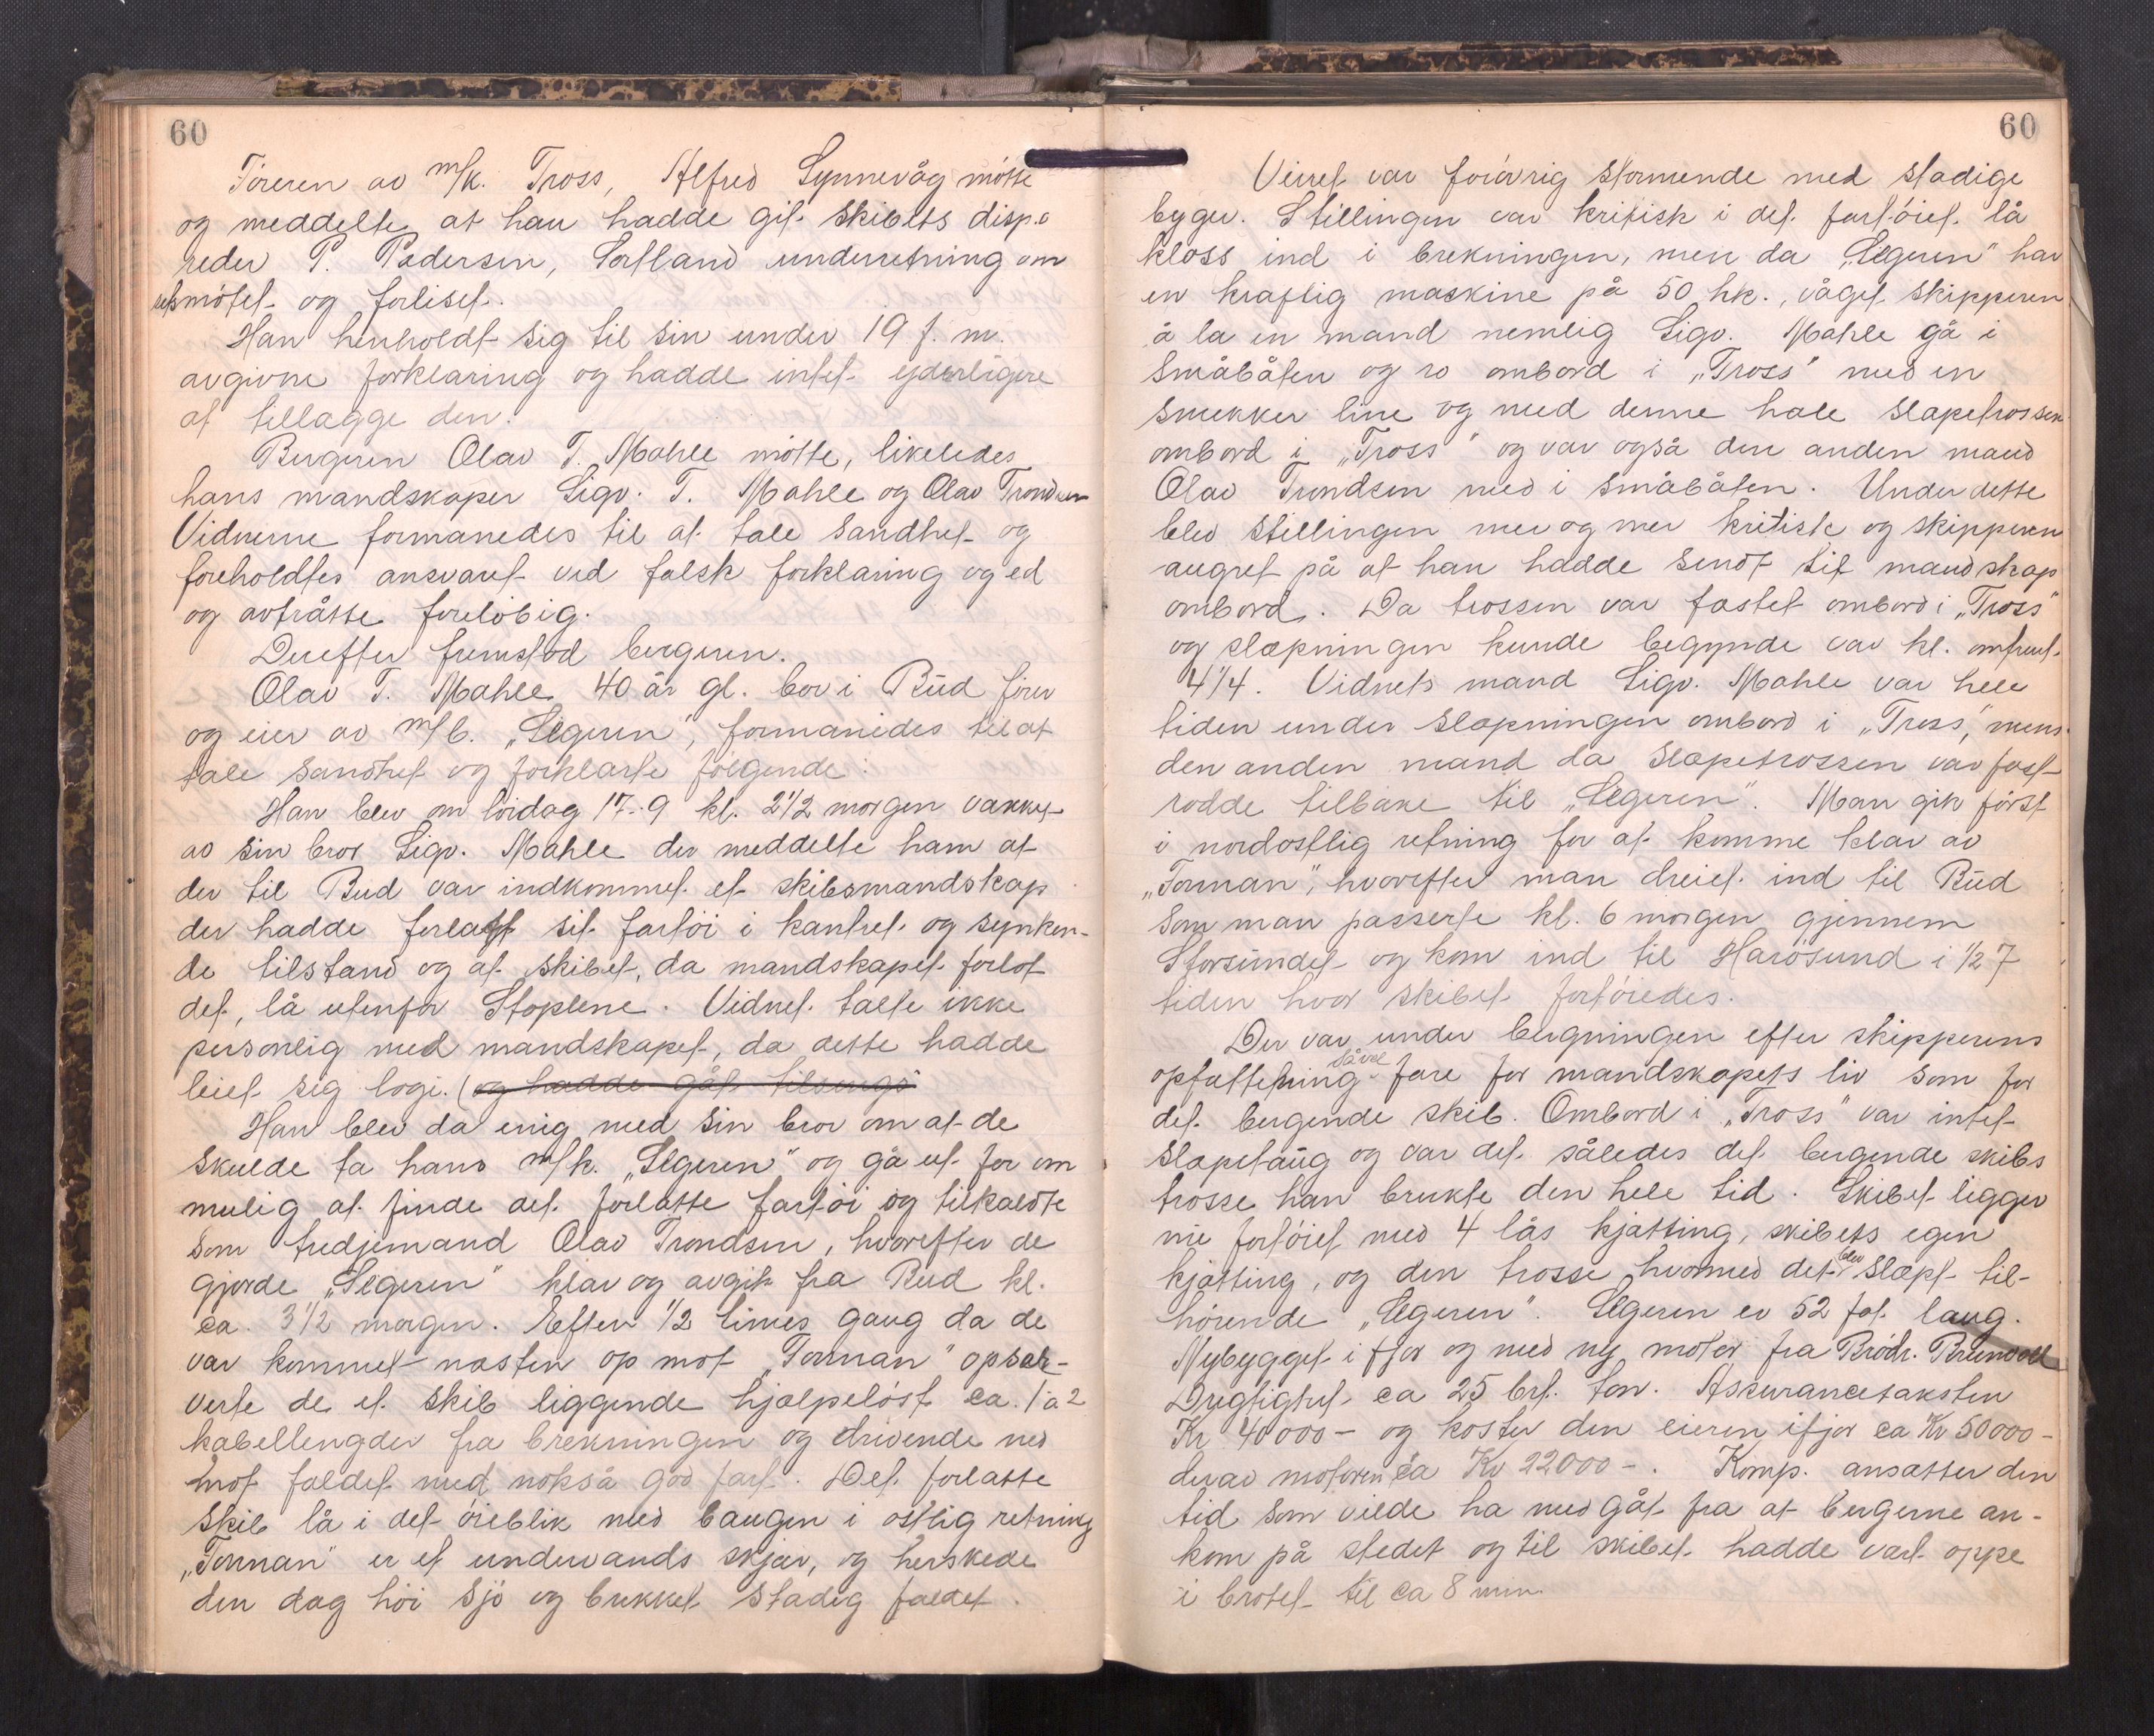 60
Føreren av m/k. Tross, Alfred Synnevåg møtte
og meddelte at han hadde git skibets disp.
reder P. Pedersen, Sortland underretning om
retsmøtet og forliset.
Han henholdt sig til sin under 19 f. m.
avgivne forklaring og hadde intet yderligere
at tillægge den.
Bergeren Olav T. Mahle møtte, likeledes
hans mandskaper Sigv. T. Mahle og Olav Trondsen
Vidnerne formanedes til at tale sandhet og
foreholdtes ansvaret ved falsk forklaring og ed
og avtråtte foreløbig.
Derefter fremstod bergeren.
Olav T. Mahle 40 år gl. bor i Bud fører
og eier av m/b. „Segeren", formanedes til at
tale sandhet og forklarte følgende:
Han blev nu lørdag 17-9 kl. 2 1/2 morgen vækket
av sin bror Sigv. Mahle der meddelte ham at
der til Bud var indkommet et skibsmandskap
der hadde forlatt sit fartøi i kantret og synken-
de tilstand og at skibet, da mandskapet forlot
det, lå utenfor Stoplene. Vidnet talte ikke
personlig med mandskapet, da dette hadde
leiet sig logi. (og hadde gåt tilsengs
Han blev da enig med sin bror om at de
skulde ta hans m/k. „Segeren" og gå ut for om
mulig at finde det forlatte fartøi og tilkaldte
som tredjemand Olav Trondsen, hvorefter de
gjorde „Segeren" klar og avgik fra Bud kl.
ca. 3 1/2 morgen. Efter 1/2 times gang da de
var kommet næsten op mot „Tornan" obser-
verte de et skib liggende hjælpeløst ca. 1 à 2
kabellengder fra brekningen og drivende ned
mot faldet med nokså god fart. Det forlatte
skib lå i det øieblik med baugen i østlig retning
„Tornan" er et undervands skjær, og herskede
den dag høi sjø og brukket stadig faldet.
60
Veiret var forøvrig stormende med stadige
byger. Stillingen var kritisk i det fartøiet lå
kloss ind i brekningen, men da „Segeren" har
en kraftig maskine på 50 hk., våget skipperen
å la en mand nemlig Sigv. Mahle gå i
småbåten og ro ombord i „Tross" med en
smekker line og med denne hale slæpetrossen
ombord i „Tross" og var også den anden mand
Olav Trondsen med i småbåten. Under dette
blev stillingen mer og mer kritisk og skipperen
angret på at han hadde sendt sit mandskap
ombord. Da trossen var fæstet ombord i „Tross"
og slæpningen kunde begynde var kl. omtrent
4 1/4. Vidnets mand Sigv. Mahle var hele
tiden under slæpningen ombord i „Tross", mens
den anden mand da slæpetrossen var fast
rodde tilbake til „Segeren". Man gik først
i nordostlig retning for at komme klar av
„Tornan", hvorefter man dreiet ind til Bud
som man passerte kl. 6 morgen gjennem
Storsundet og kom ind til Harøsund i 1/2 7
tiden hvor skibet fortøiedes.
Der var under bergningen efter skipperens
opfattening såvel fare for mandskapets liv som for
det bergende skib. Ombord i „Tross" var intet
slæpetaug og var det således det bergende skibs
trosse han brukte den hele tid. Skibet ligger
nu fortøiet med 4 lås kjætting, skibets egen
kjætting, og den trosse hvormed det blev slæpt til-
hørende „Segeren". Segeren er 52 fot lang.
Nybygget i fjor og med ny motor fra Brødr. Brunvoll
Drægtighet ca 25 brt. ton. Assurancetaksten
Kr 40000 - og koster den eieren ifjor ca Kr 50000-
derav motoren ca Kr 22000 -. Komp. ansætter den
tid som vilde ha medgåt fra at bergerne an-
kom på stedet og til skibet hadde vært oppe
i brotet til ca 8 min.